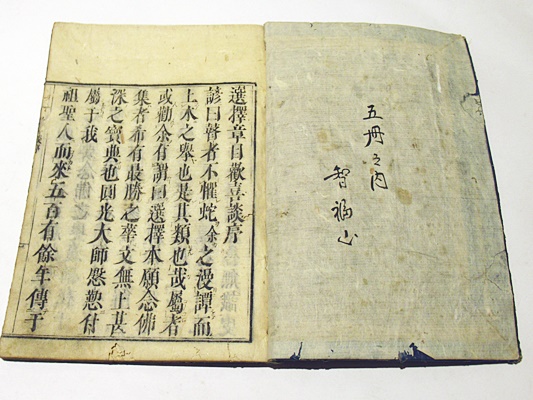 五册之内
智福山
選擇章目歡喜談序
諺曰瞽者不懼蛇余之漫譚而
上木之舉也是其類也哉屬者
或勸余有謂曰選擇本願念佛
集者希有最勝之華文無上甚
深之寶典也圓光大師慇懃付
屬于我
祖聖人而來五百有餘年傳于